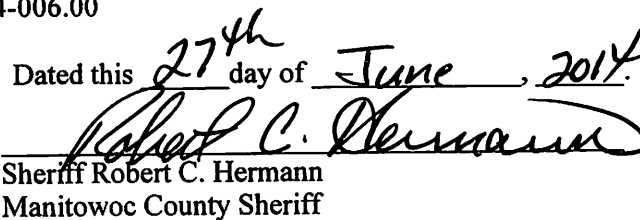 4-006.00
Dated this 27th day of June, 2014.
Robert C. Hermann
Sheriff Robert C. Hermann
Manitowoc County Sheriff